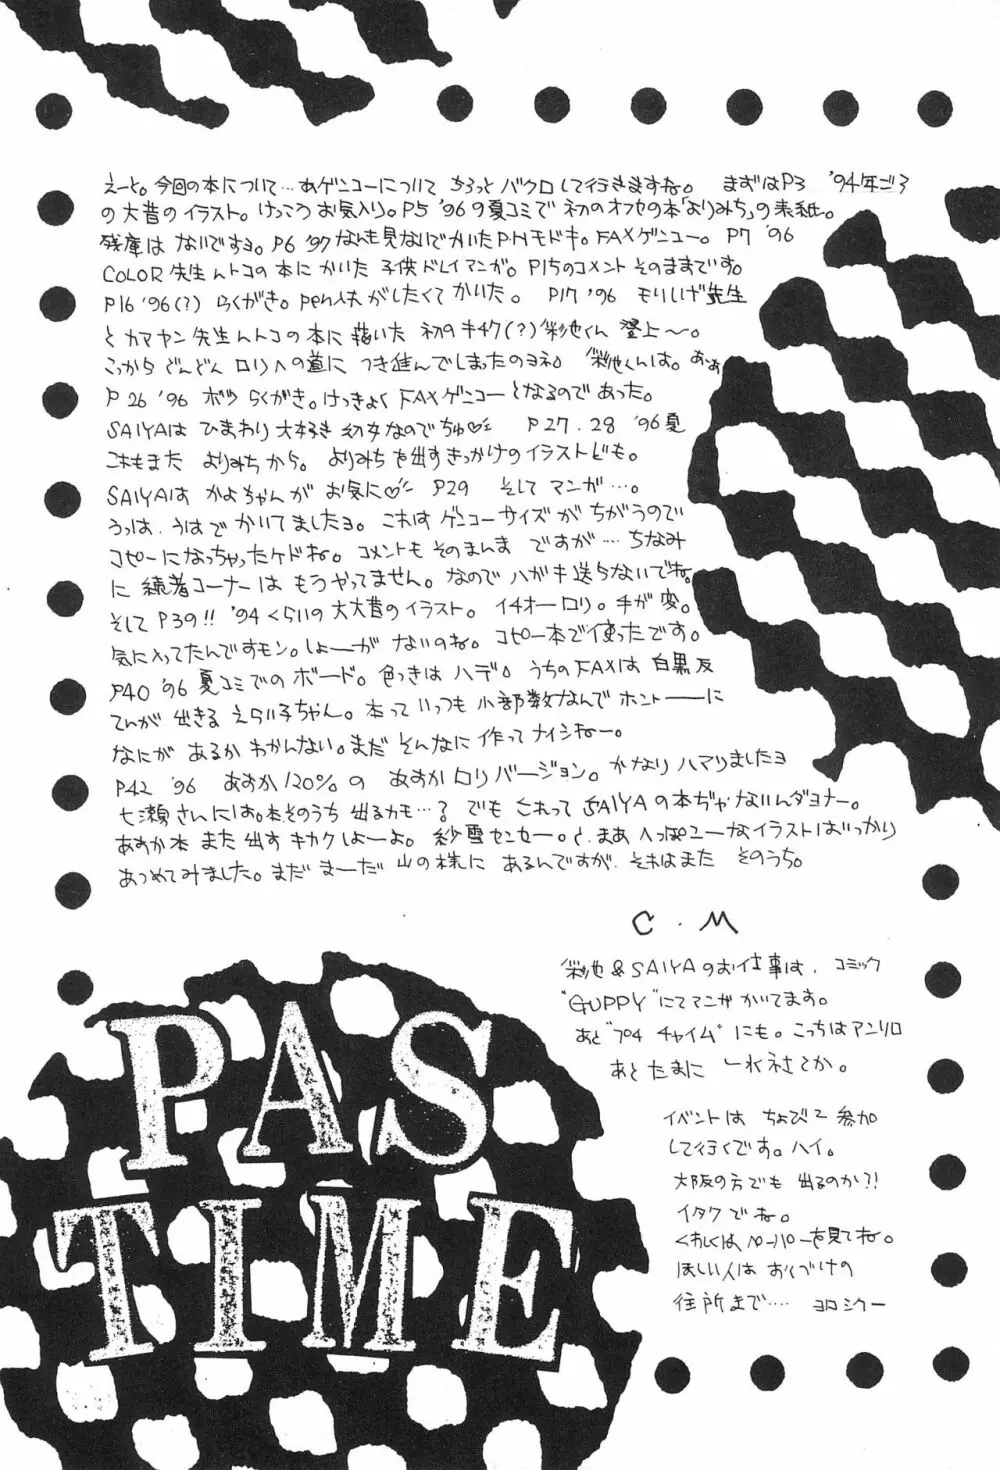 えーと。今回の本について…あゲンコーについて ちろっと バクロして行きますね。 まずはP3 '94年ごろ
の大昔のイラスト。けっこうお気入り。P5 '96の夏コミで 初のオフセの本「よりみち」の表紙。
残庫は ないですヨ。P6 '97なんも見ないでかいたPHモドキ。FAXゲンコー。P7 '96
COLOR先生んトコの本に かいた 子供ドレイマンガ。P15のコメント そのままです。
P16 '96(?) らくがき。pen入れがしたくて かいた。 P17 '96 もりしげ先生
とカマヤン先生んトコの本に描いた 初のキチク(?)彩池くん 登上〜。
こっから どんどん ロリへの道に つき進んでしまったのヨネ。彩池くんは。あぁ
P26 '96 ボツ らくがき。けっきょく FAXゲンコーとなるのであった。
SAIYAは ひまわり 大好き 幼女なのでちゅ♡ P27.28 '96夏
これもまた よりみちから。よりみちを出すきっかけのイラストども。
SAIYAは かよちゃんが お気に♡ P29 そして マンガ…。
うっは、うはで かいてましたヨ。これは ゲンコーサイズが ちがうので
コピーになっちゃったケドね。コメントも そのまんま ですが…ちなみ
に 続着コーナーは もうやってません。なので ハガキ送らないでね。
そして P39!! '94くらいの大大昔のイラスト。イ4オーロリ。手が変。
気に入ってたんですモン。しょーがないのね。コピー本で使ったです。
P40 '96 夏コミでの ボード。色っきは ハデ。うちのFAXは 白黒反
てんが 出きる えらい子ちゃん。本って いっつも 小部数なんで ホントーーに
なにが あるか わかんない。まだ そんなに 作ってナイシねー。
P42 '96 あすか120%の あすかロリバージョン。かなりハマりましたヨ
七瀬さんには。本そのうち 出るカモ…？ でも これって SAIYAの本ぢゃないんダヨナー。
あすか本 また 出す キカクしよーよ。紗雪センセー。と、まあ へっぽコーなイラストばっかり
あつめてみました。まだ まーだ 山の様に あるんですが、それはまた そのうち。
C.M
彩池&SAIYAのお仕事は、コミック
"GUPPY"にてマンガかいてます。
あと"プチ チャイム"にも。こっちはアンリロ
あと たまに 一水社とか。
イベントは ちょびっと 参加
して行くです。ハイ。
大阪の方でも 出るのか?!
イタクでね。
くわしくは ペーパーを見てね。
ほしい人は おくづけの
住所まで…. ヨロシクー
PAS
TIME